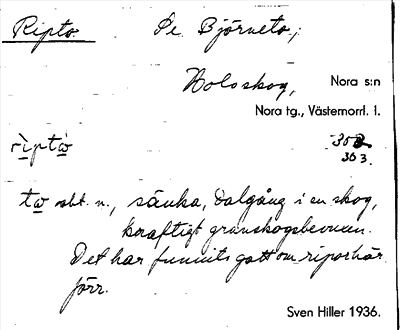 Ripto. Se. Björneto,;
Holoskog, Nora s:n
Nora tg., Västernorrl. l.
ri̱pto̱ 302
303
to̱ sbt. n., sänka, dalgång i en skog,
kraftigt granskogsbevuxen.
Det har funnits gott om ripor här
förr.
Sven Hiller 1936.